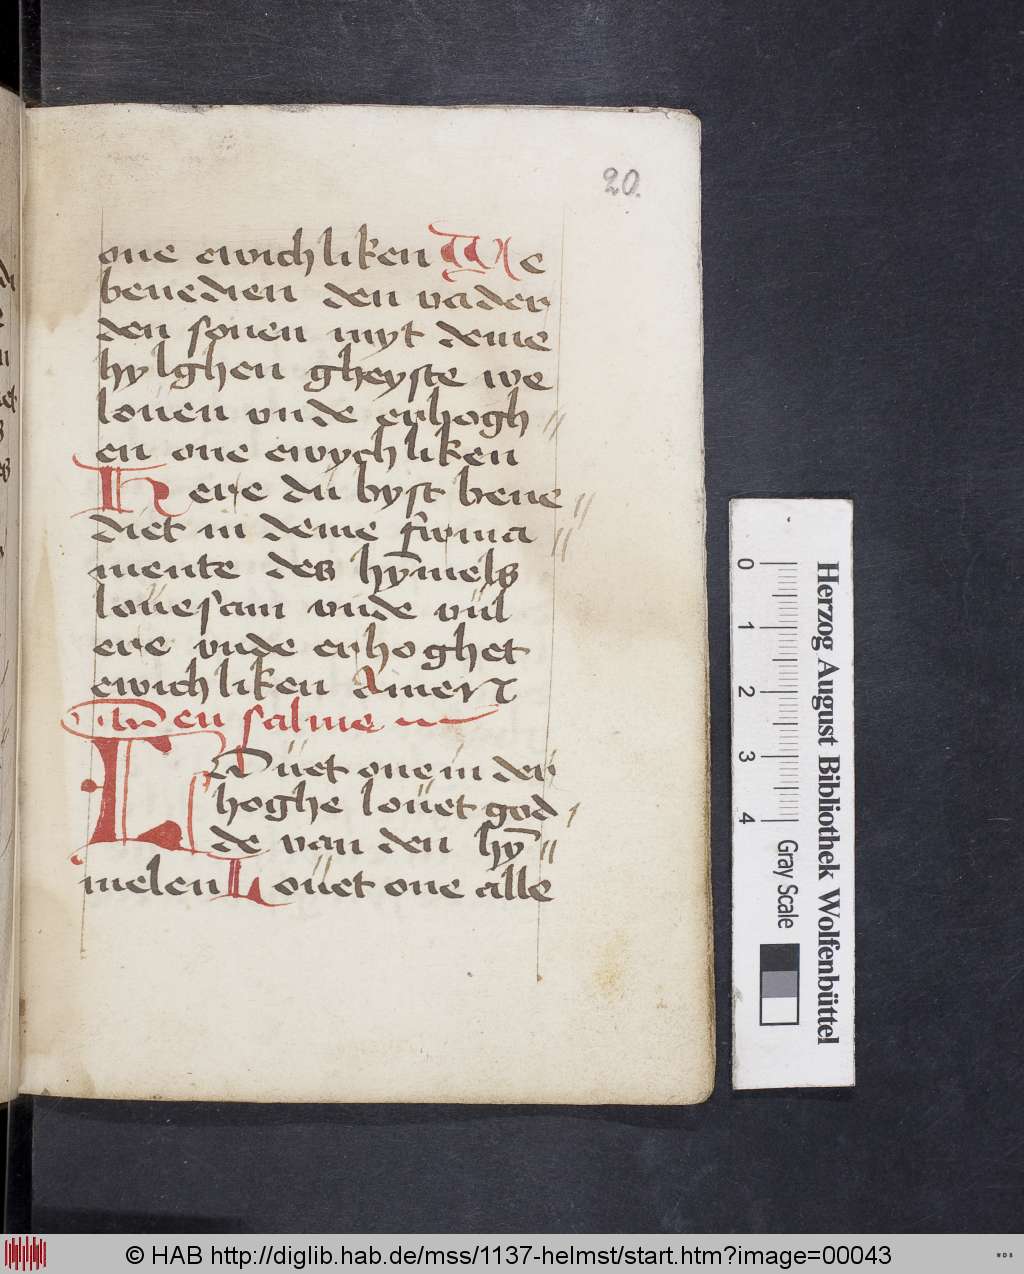 20.
one ewichliken We
benedien den vader
den sonen myt deme
hylghen gheyste we
louen vnde erhogh //
en one ewychliken
Here du byst bene //
diet in deme firma //
mente des hȳmels
louesam vnde vul
ere vnde erhoghet
ewichliken Amen
en salme
LAuet one in der
hoghe louet god /
de van den hȳ //
melen Louet one alle
0 1 2 3 4
Gray Scale
Herzog August Bibliothek Wolfenbüttel
© HAB http://diglib.hab.de/mss/1137-helmst/start.htm?image=00043